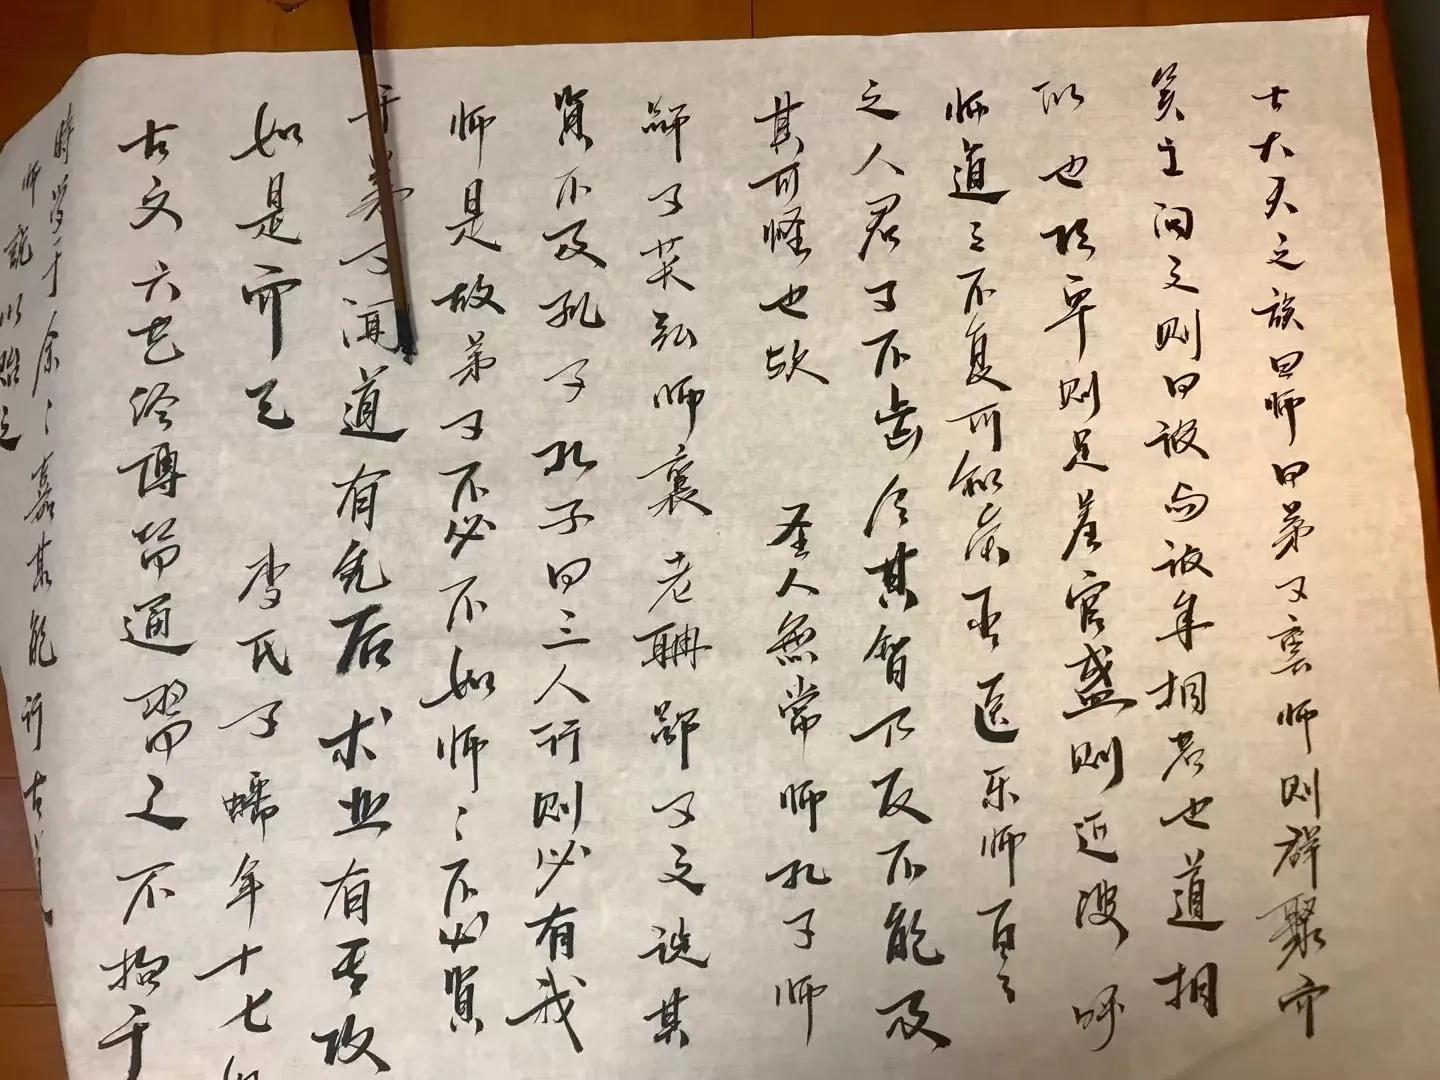 士大夫之族曰师曰弟子师则群聚而
笑之问之则曰彼与彼年相若也道相
似也位卑则足羞官盛则近谀呼
师道之不复可知矣巫医乐师百工
之人君子不齿今其智乃反不能及
其可怪也欤 圣人無常师孔子师
郯子苌弘师襄老聃郯子之徒其
贤不及孔子孔子曰三人行则必有我
师是故弟子不必不如师〻不必贤
于弟子闻道有先后术业有专攻
如是而已 李氏子蟠年十七好
古文六艺经传皆通習之不拘于
时学于余〻嘉其能行古道
师说以贻之